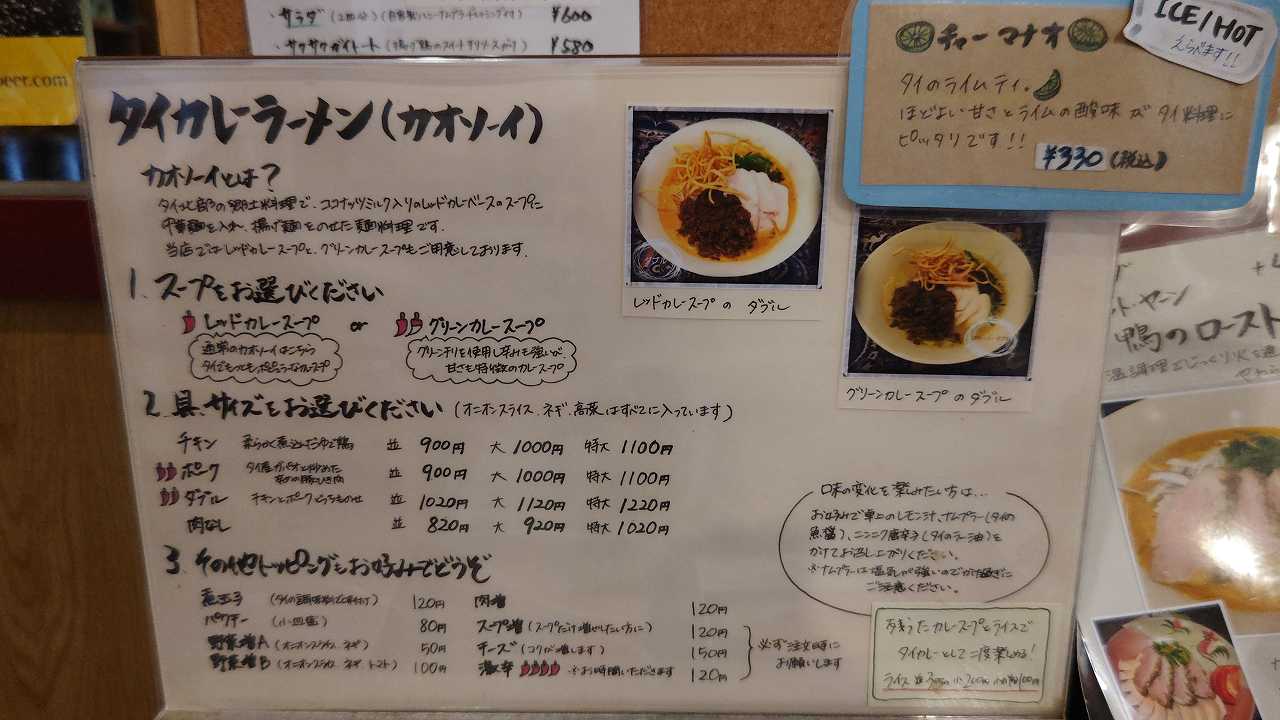 ・サラダ
¥600
・サクサクガイトート
¥580
beer.com
チャー マナオ
ICE/HOT
えらべます!!
タイのライムティ。
ほどよい甘さとライムの酸味がタイ料理に
ピッタリです!!
¥330(税込)
タイカレーラーメン(カオソーイ)
カオソーイとは?
タイ北部の郷土料理で、ココナッツミルク入りのレッドカレーベースのスープに
中華麺を入れ、揚げ麺をのせた麺料理です。
当店ではレッドカレースープと、グリーンカレースープをご用意しております。
レッドカレースープの ダブル
グリーンカレースープのダブル
1. スープをお選びください
レッドカレースープ or グリーンカレースープ
通常のカオソーイはこちら
タイでもっともポピュラーなカレースープ
グリーンチリを使用し辛みも強いが、
甘さも特徴のカレースープ
2. 具、サイズをお選びください (オニオンスライス、ネギ、高菜はすべてに入っています)
チキン 柔らかく煮込んだゆで鶏 並 900円 大 1000円 特大 1100円
ポーク 並 900円 大 1000円 特大 1100円
ダブル チキンとポークどっちものせ 並 1020円 大 1120円 特大 1220円
肉なし 並 820円 大 920円 特大 1020円
3. その他トッピングをお好みでどうぞ
煮玉子 120円 肉増 120円
パクチー (小皿盛) 80円 スープ増 (スープだけ増やしたい方に) 120円
野菜増A (オニオンスライス、ネギ) 50円 チーズ (コクが増します) 150円
野菜増B (オニオンスライス ネギ トマト) 100円 激辛 ※お時間いただきます 120円
必ず注文時に
お願いします
味の変化を楽しみたい方は…
お好みで卓上のレモン汁、ナムプラー(タイの
魚醤)、ニンニク唐辛子(タイのラー油)を
かけてお召し上がりください。
※ナムプラーは塩気が強いのでかけ過ぎに
ご注意ください。
あまったカレースープとライスで
タイカレーとして二度楽しめる!
鴨のロースト